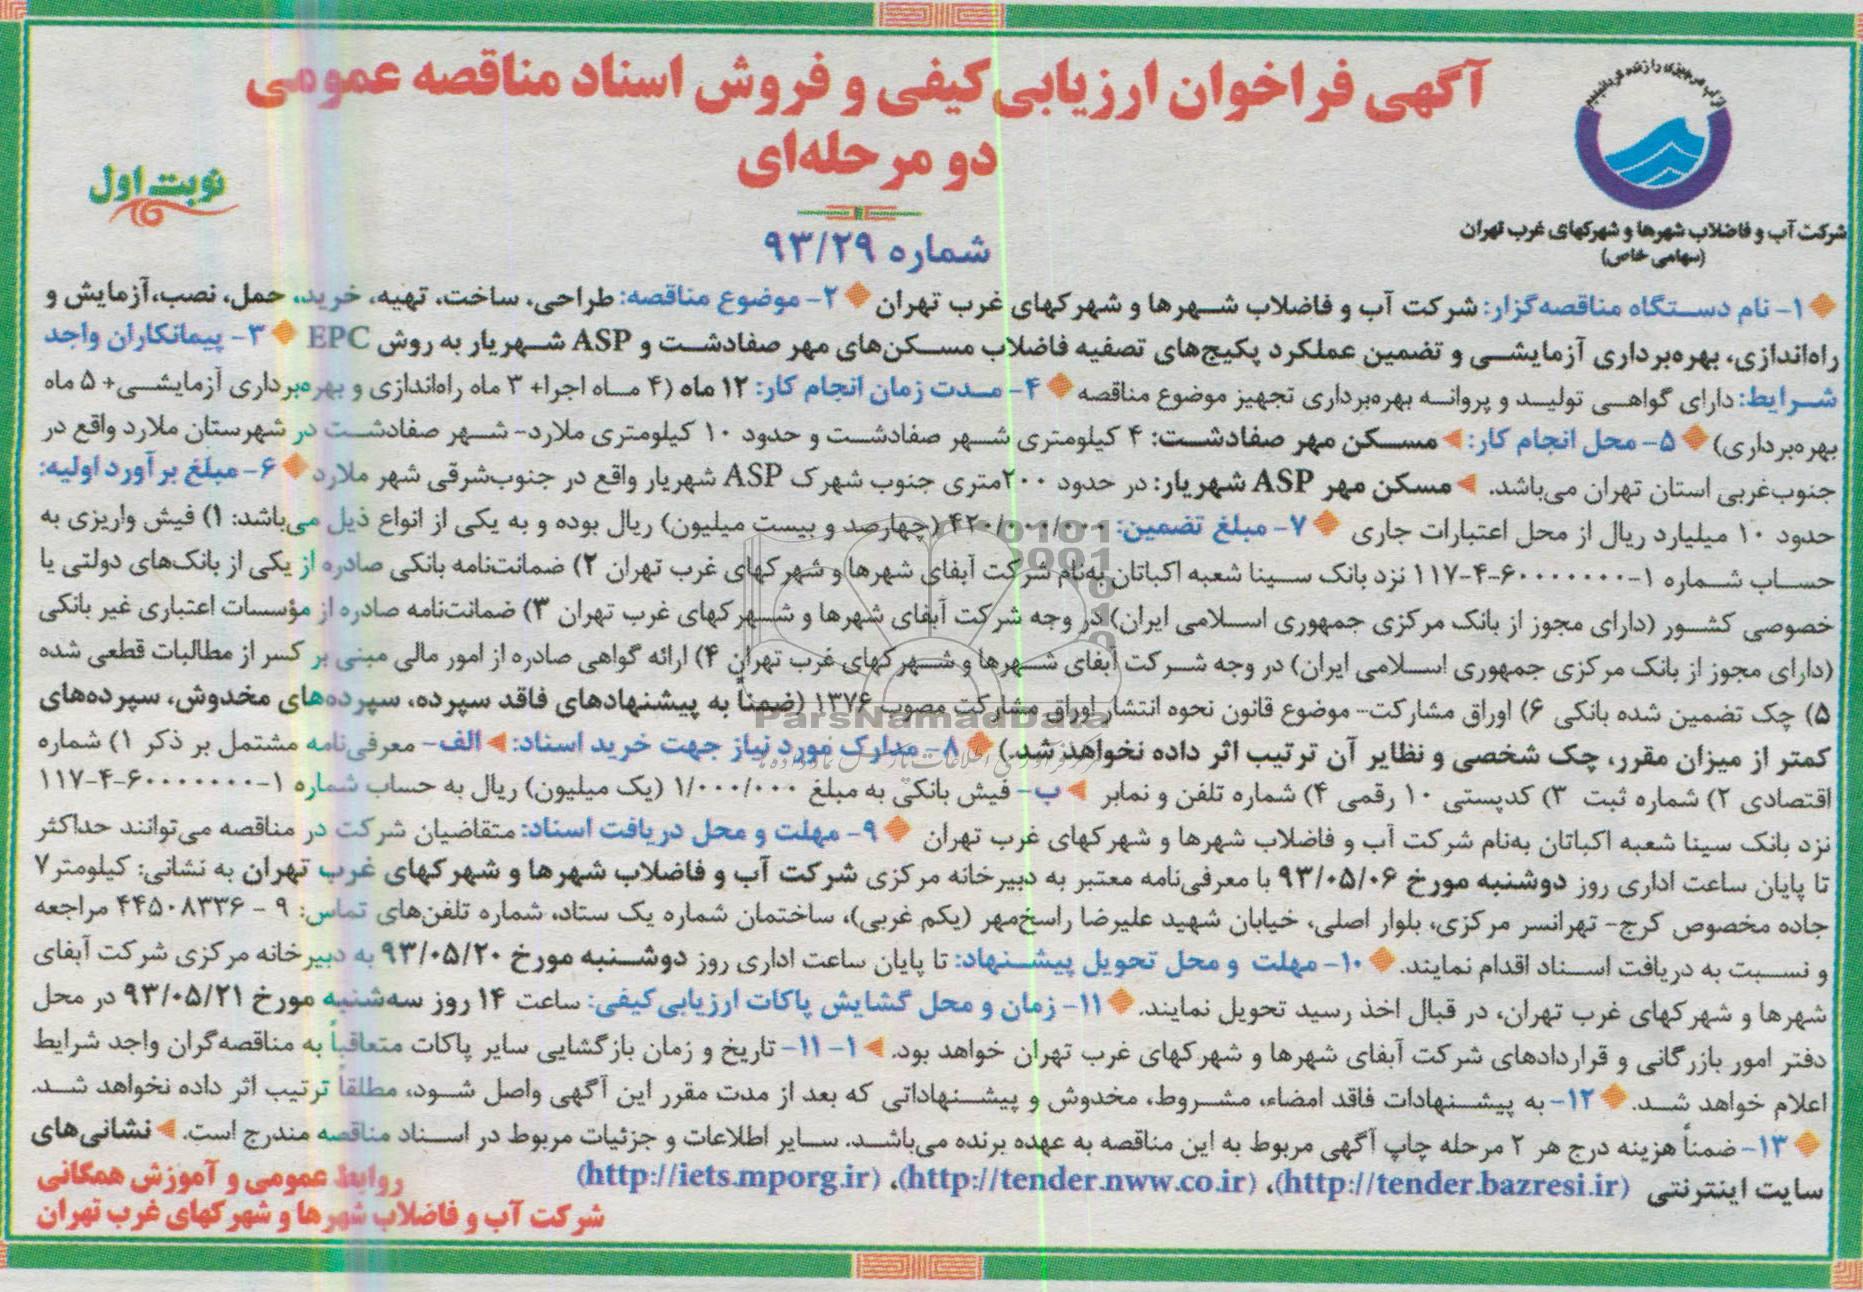 از آب هر چیزی را زنده گردانیدیم
شرکت آب و فاضلاب شهرها و شهرکهای غرب تهران
(سهامی خاص)
آگهی فراخوان ارزیابی کیفی و فروش اسناد مناقصه عمومی
دو مرحله‌ای
نوبت اول
شماره ۹۳/۲۹
۱- نام دستگاه مناقصه‌گزار: شرکت آب و فاضلاب شهرها و شهرکهای غرب تهران ۲- موضوع مناقصه: طراحی، ساخت، تهیه، خرید، حمل، نصب، آزمایش و
راه‌اندازی، بهره‌برداری آزمایشی و تضمین عملکرد پکیج‌های تصفیه فاضلاب مسکن‌های مهر صفادشت و ASP شهریار به روش EPC ۳- پیمانکاران واجد
شرایط: دارای گواهی تولید و پروانه بهره‌برداری تجهیز موضوع مناقصه ۴- مدت زمان انجام کار: ۱۲ ماه (۴ ماه اجرا+ ۳ ماه راه‌اندازی و بهره‌برداری آزمایشی+ ۵ ماه
بهره‌برداری) ۵- محل انجام کار: مسکن مهر صفادشت: ۴ کیلومتری شهر صفادشت و حدود ۱۰ کیلومتری ملارد- شهر صفادشت در شهرستان ملارد واقع در
جنوب‌غربی استان تهران می‌باشد. مسکن مهر ASP شهریار: در حدود ۲۰۰متری جنوب شهرک ASP شهریار واقع در جنوب‌شرقی شهر ملارد ۶- مبلغ برآورد اولیه:
حدود ۱۰ میلیارد ریال از محل اعتبارات جاری ۷- مبلغ تضمین: ۴۲۰/۰۰۰/۰۰۰ (چهارصد و بیست میلیون) ریال بوده و به یکی از انواع ذیل می‌باشد: ۱) فیش واریزی به
حساب شماره ۱-۶۰۰۰۰۰۰۰-۴-۱۱۷ نزد بانک سینا شعبه اکباتان به‌نام شرکت آبفای شهرها و شهرکهای غرب تهران ۲) ضمانت‌نامه بانکی صادره از یکی از بانک‌های دولتی یا
خصوصی کشور (دارای مجوز از بانک مرکزی جمهوری اسلامی ایران) در وجه شرکت آبفای شهرها و شهرکهای غرب تهران ۳) ضمانت‌نامه صادره از مؤسسات اعتباری غیر بانکی
(دارای مجوز از بانک مرکزی جمهوری اسلامی ایران) در وجه شرکت آبفای شهرها و شهرکهای غرب تهران ۴) ارائه گواهی صادره از امور مالی مبنی بر کسر از مطالبات قطعی شده
۵) چک تضمین شده بانکی ۶) اوراق مشارکت- موضوع قانون نحوه انتشار اوراق مشارکت مصوب ۱۳۷۶ (ضمناً به پیشنهادهای فاقد سپرده، سپرده‌های مخدوش، سپرده‌های
کمتر از میزان مقرر، چک شخصی و نظایر آن ترتیب اثر داده نخواهد شد.) ۸- مدارک مورد نیاز جهت خرید اسناد: الف- معرفی‌نامه مشتمل بر ذکر ۱) شماره
اقتصادی ۲) شماره ثبت ۳) کدپستی ۱۰ رقمی ۴) شماره تلفن و نمابر ب- فیش بانکی به مبلغ ۱/۰۰۰/۰۰۰ (یک میلیون) ریال به حساب شماره ۱-۶۰۰۰۰۰۰۰-۴-۱۱۷
نزد بانک سینا شعبه اکباتان به‌نام شرکت آب و فاضلاب شهرها و شهرکهای غرب تهران ۹- مهلت و محل دریافت اسناد: متقاضیان شرکت در مناقصه می‌توانند حداکثر
تا پایان ساعت اداری روز دوشنبه مورخ ۹۳/۰۵/۰۶ با معرفی‌نامه معتبر به دبیرخانه مرکزی شرکت آب و فاضلاب شهرها و شهرکهای غرب تهران به نشانی: کیلومتر ۷
جاده مخصوص کرج- تهرانسر مرکزی، بلوار اصلی، خیابان شهید علیرضا راسخ‌مهر (یکم غربی)، ساختمان شماره یک ستاد، شماره تلفن‌های تماس: ۹ - ۴۴۵۰۸۳۳۶ مراجعه
و نسبت به دریافت اسناد اقدام نمایند. ۱۰- مهلت و محل تحویل پیشنهاد: تا پایان ساعت اداری روز دوشنبه مورخ ۹۳/۰۵/۲۰ به دبیرخانه مرکزی شرکت آبفای
شهرها و شهرکهای غرب تهران، در قبال اخذ رسید تحویل نمایند. ۱۱- زمان و محل گشایش پاکات ارزیابی‌کیفی: ساعت ۱۴ روز سه‌شنبه مورخ ۹۳/۰۵/۲۱ در محل
دفتر امور بازرگانی و قراردادهای شرکت آبفای شهرها و شهرکهای غرب تهران خواهد بود. ۱- ۱۱- تاریخ و زمان بازگشایی سایر پاکات متعاقباً به مناقصه‌گران واجد شرایط
اعلام خواهد شد. ۱۲- به پیشنهادات فاقد امضاء، مشروط، مخدوش و پیشنهاداتی که بعد از مدت مقرر این آگهی واصل شود، مطلقاً ترتیب اثر داده نخواهد شد.
۱۳- ضمناً هزینه درج هر ۲ مرحله چاپ آگهی مربوط به این مناقصه به عهده برنده می‌باشد. سایر اطلاعات و جزئیات مربوط در اسناد مناقصه مندرج است. نشانی‌های
سایت اینترنتی (http://tender.bazresi.ir)، (http://tender.nww.co.ir)، (http://iets.mporg.ir)
روابط عمومی و آموزش همگانی
شرکت آب و فاضلاب شهرها و شهرکهای غرب تهران
ParsNamadData